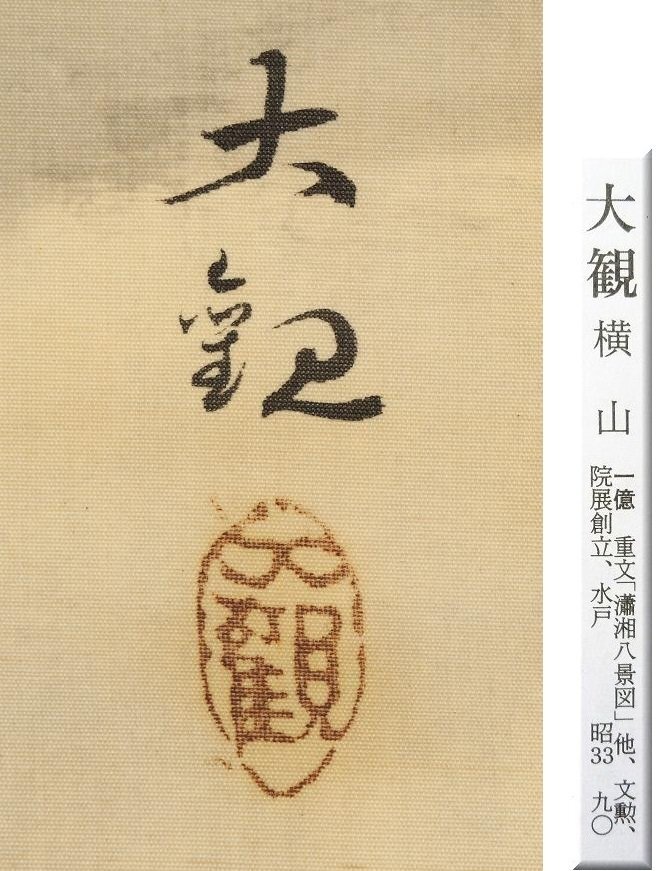 大観
大観
大観 横山
一億 重文「瀟湘八景図」他、文勲、
院展創立、水戸 昭33 九〇